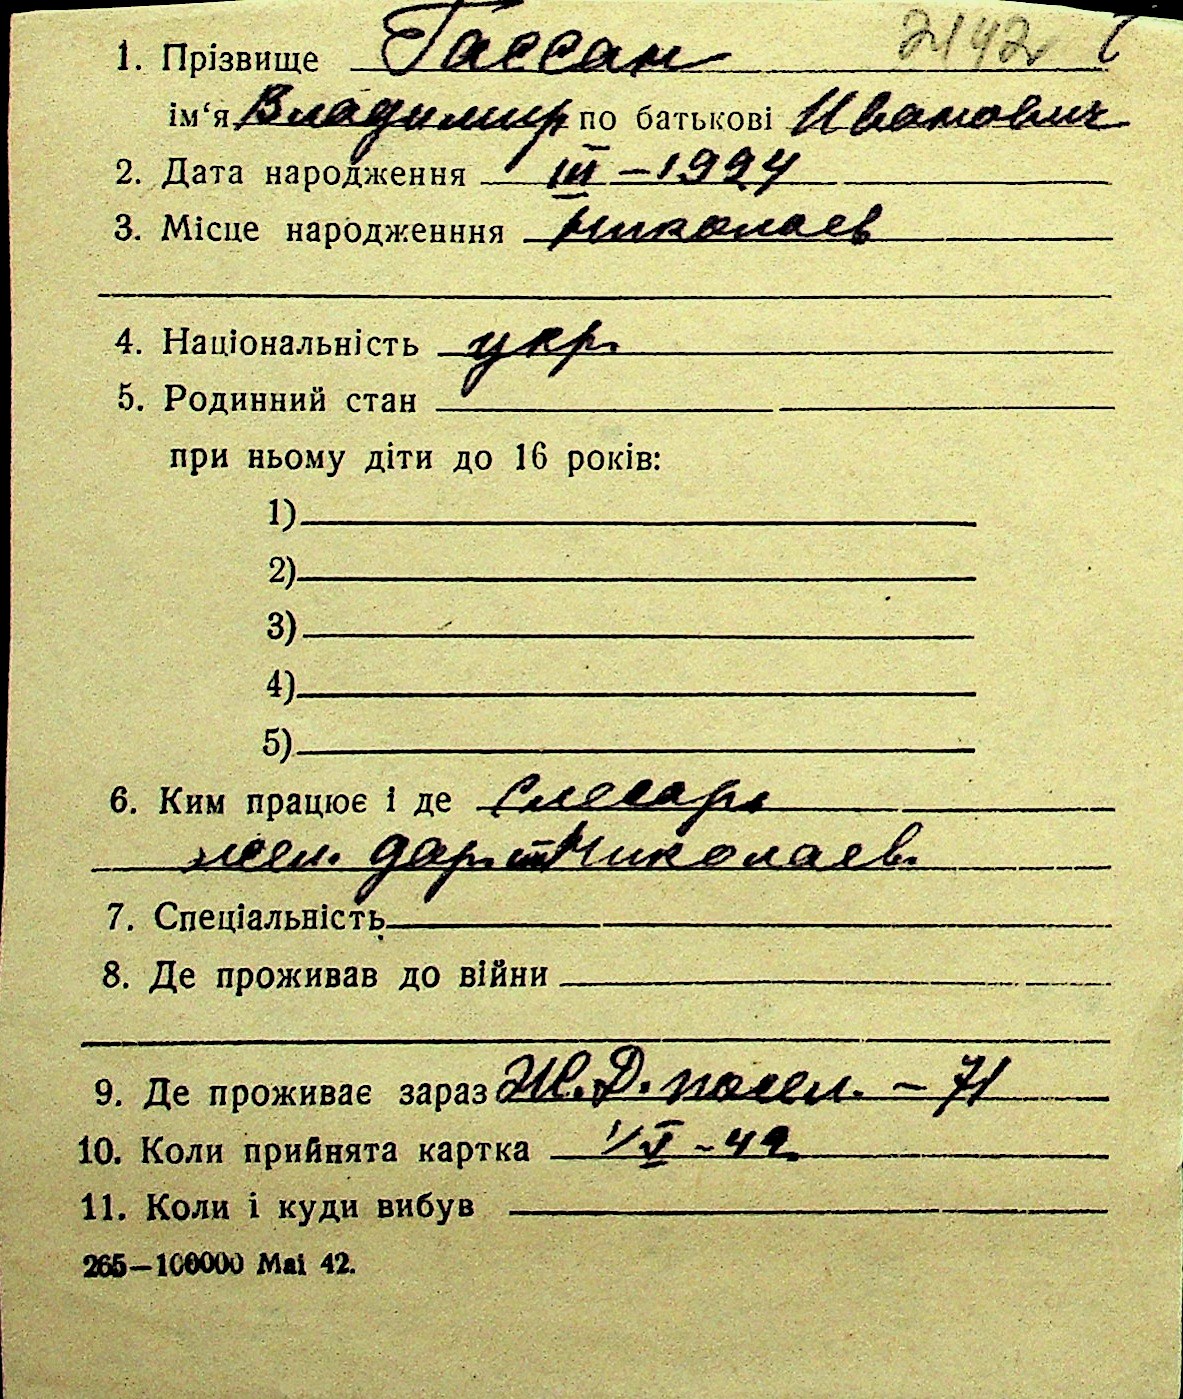 2142
1. Прізвище Гассан
ім‘я Владимир по батькові Иванович
2. Дата народження III – 1924
3. Місце народженння Николаев
4. Національність укр.
5. Родинний стан
при ньому діти до 16 років:
1)
2)
3)
4)
5)
6. Ким працює і де Слесарь
жел. дор. ст Николаев.
7. Спеціальність
8. Де проживав до війни
9. Де проживає зараз Ж.Д. посел. – 71
10. Коли прийнята картка 1/V - 42
11. Коли і куди вибув
265—100000 Mai 42.